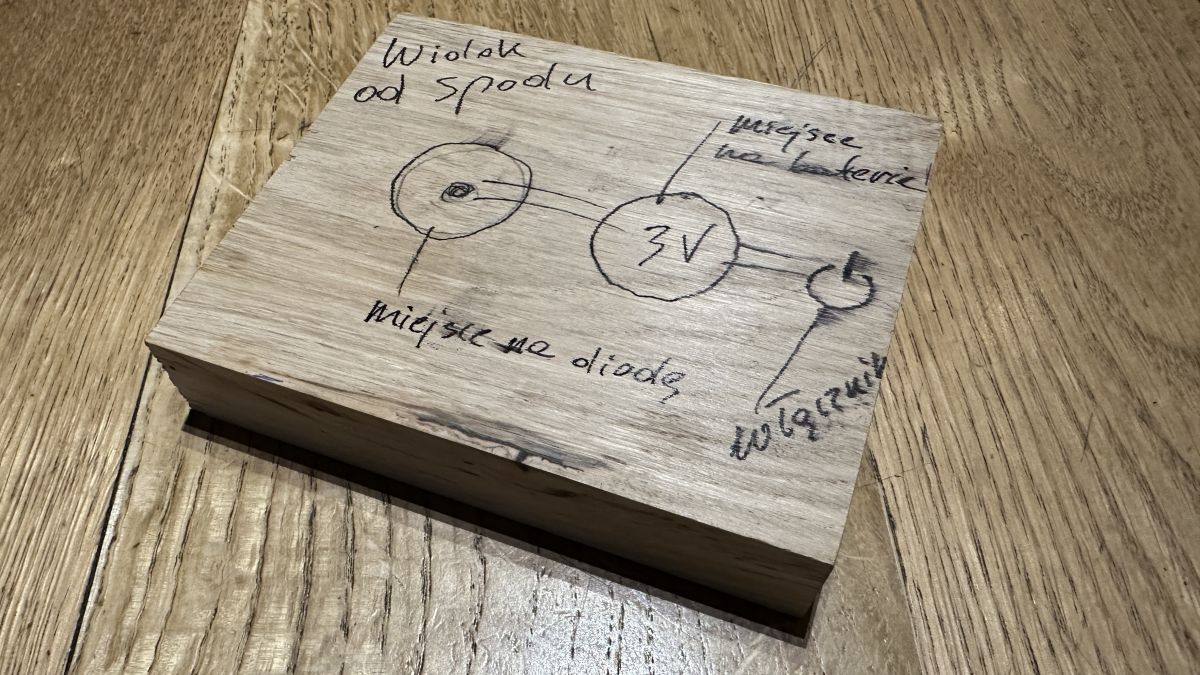 Widok
od spodu
miejsce
na baterie
3V
miejsce na diodę
włącznik